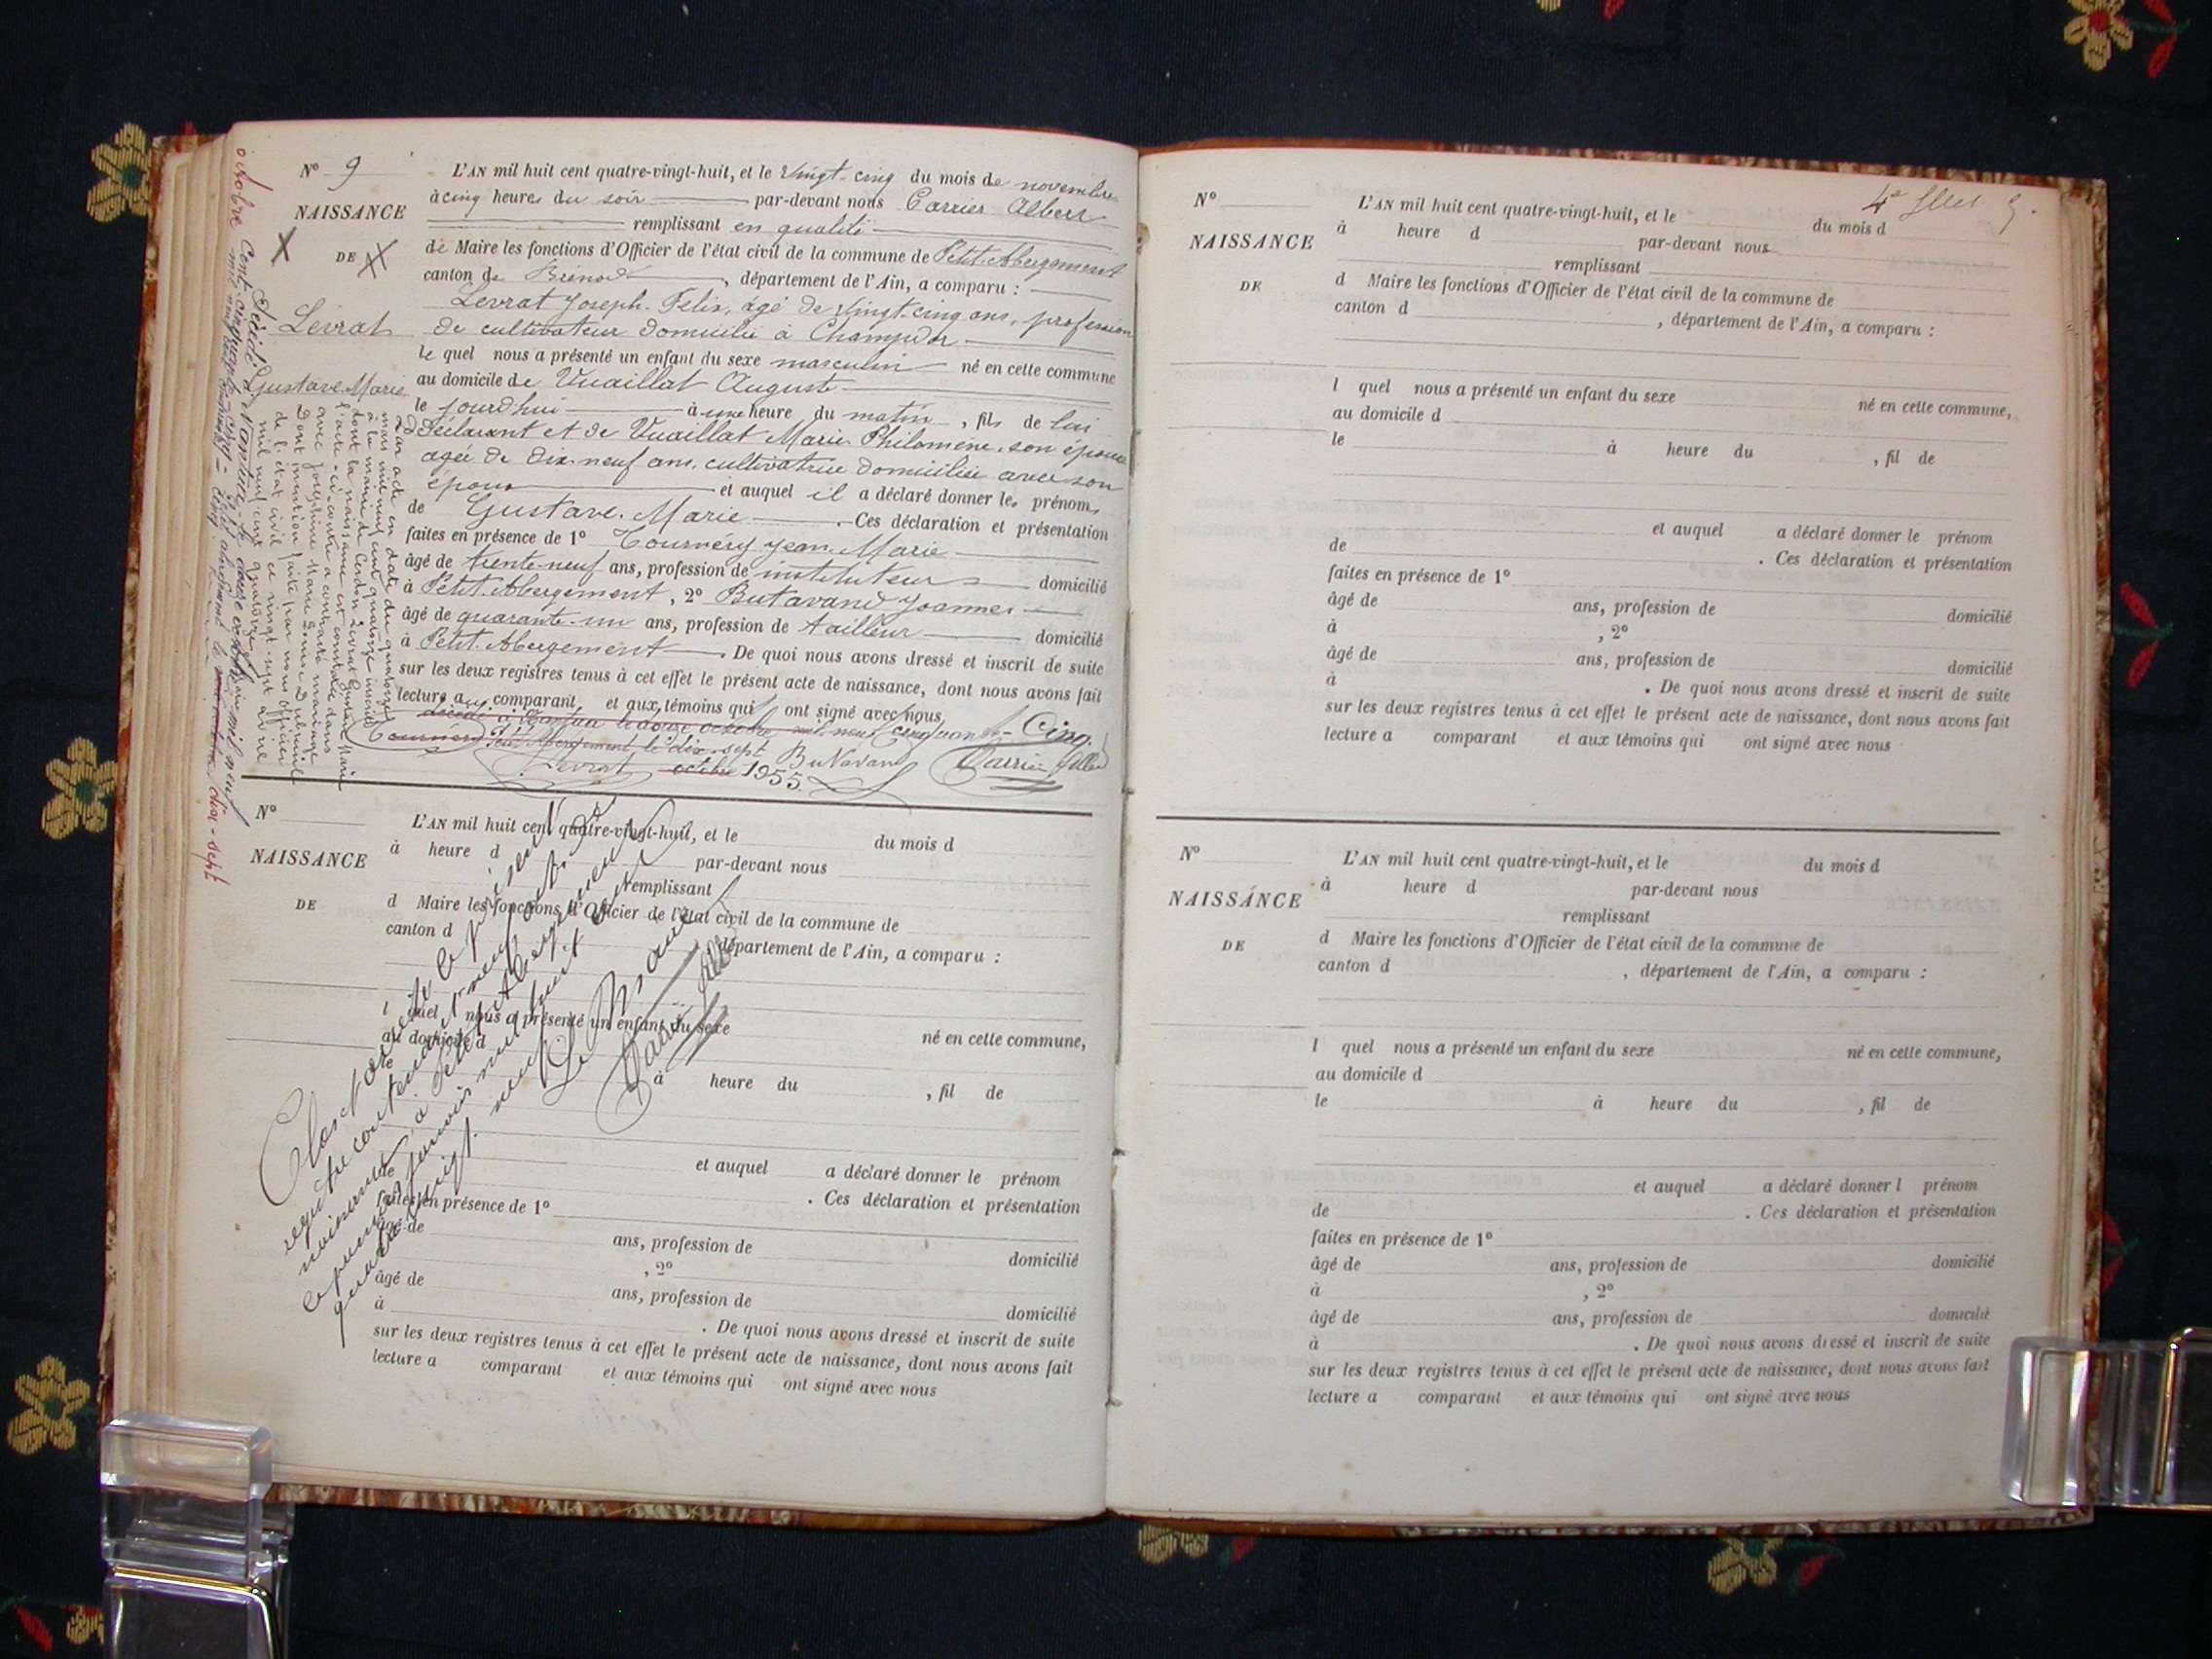 N° 9
NAISSANCE
DE
Levrat
Gustave Marie
L'AN mil huit cent quatre-vingt-huit, et le vingt-cinq du mois de novembre
à cinq heures du soir par-devant nous Carrier Albert
remplissant en qualité
de Maire les fonctions d'Officier de l'état civil de la commune de Petit-Abergement
canton de Brénod, département de l'Ain, a comparu :
Levrat Joseph-Felix, âgé de vingt-cinq ans, profession
de cultivateur domicilié à Champdor
le quel nous a présenté un enfant du sexe masculin né en cette commune
au domicile de Vuaillat Auguste
le jourd'hui à une heure du matin, fils de lui
déclarant et de Vuaillat Marie Philomène, son épouse
agée de dix-neuf ans, cultivatrice domiciliée avec son
époux et auquel il a déclaré donner les prénoms
de Gustave. Marie. Ces déclaration et présentation
faites en présence de 1° Tournéry Jean Marie
âgé de trente-neuf ans, profession de instituteur domicilié
à Petit-Abergement, 2° Butavand Joannes
âgé de quarante-un ans, profession de tailleur domicilié
à Petit-Abergement. De quoi nous avons dressé et inscrit de suite
sur les deux registres tenus à cet effet le présent acte de naissance, dont nous avons fait
lecture aux comparant et aux témoins qui ont signé avec nous
décédé à Nantua le douze octobre mil neuf cent cinquante-Cinq.
Petit Abergement le dix-sept Butavand
Levrat octobre 1955 Carrier Albert
Par acte en date du quatorze
mars mil neuf cent quatorze inscrit
à la mairie de Cerdon Levrat Gustave Marie
dont la naissance est constatée dans
l'acte ci-contre a contracté mariage
avec Joséphine Marie
Dont mention faite par nous officier
de l'état civil ce vingt-sept avril
mil neuf cent quatorze
Décédé à Nantua le douze octobre mil neuf
cent cinquante cinq
octobre dix-sept
N°
NAISSANCE
DE
L'AN mil huit cent quatre-vingt-huit, et le du mois d
à heure d par-devant nous
remplissant
d Maire les fonctions d'Officier de l'état civil de la commune de
canton d département de l'Ain, a comparu :
l quel nous a présenté un enfant du sexe né en cette commune,
au domicile d
le à heure du , fil de
et auquel a déclaré donner le prénom
de . Ces déclaration et présentation
faites en présence de 1°
âgé de ans, profession de domicilié
, 2°
âgé de ans, profession de domicilié
à . De quoi nous avons dressé et inscrit de suite
sur les deux registres tenus à cet effet le présent acte de naissance, dont nous avons fait
lecture a comparant et aux témoins qui ont signé avec nous
Clos et arrêté le présent
registre contenant neuf actes de
naissances à Petit Abergement
le premier janvier mil huit cent
quatre vingt neuf
Le Maire
Carrier Albert
4e 9.
N°
NAISSANCE
DE
L'AN mil huit cent quatre-vingt-huit, et le du mois d
à heure d par-devant nous
remplissant
d Maire les fonctions d'Officier de l'état civil de la commune de
canton d , département de l'Ain, a comparu :
l quel nous a présenté un enfant du sexe né en cette commune,
au domicile d
le à heure du , fil de
et auquel a déclaré donner le prénom
de . Ces déclaration et présentation
faites en présence de 1°
âgé de ans, profession de domicilié
à , 2°
âgé de ans, profession de domicilié
à . De quoi nous avons dressé et inscrit de suite
sur les deux registres tenus à cet effet le présent acte de naissance, dont nous avons fait
lecture a comparant et aux témoins qui ont signé avec nous
N°
NAISSANCE
DE
L'AN mil huit cent quatre-vingt-huit, et le du mois d
à heure d par-devant nous
remplissant
d Maire les fonctions d'Officier de l'état civil de la commune de
canton d , département de l'Ain, a comparu :
l quel nous a présenté un enfant du sexe né en cette commune,
au domicile d
le à heure du , fil de
et auquel a déclaré donner l prénom
de . Ces déclaration et présentation
faites en présence de 1°
âgé de ans, profession de domicilié
à , 2°
âgé de ans, profession de domicilié
à . De quoi nous avons dressé et inscrit de suite
sur les deux registres tenus à cet effet le présent acte de naissance, dont nous avons fait
lecture a comparant et aux témoins qui ont signé avec nous